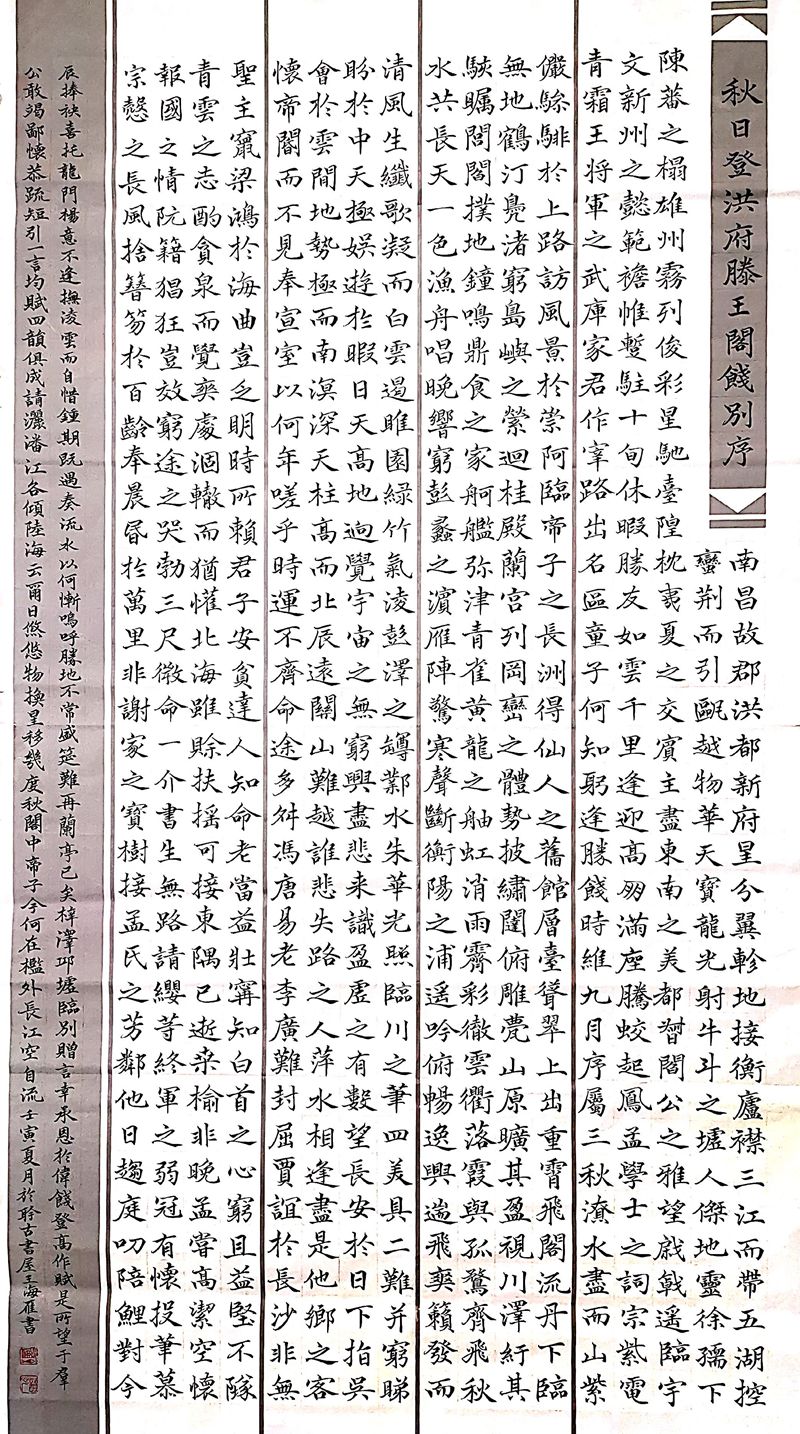 秋日登洪府滕王閣餞別序
南昌故郡洪都新府星分翼軫地接衡廬襟三江而帶五湖控
蠻荊而引甌越物華天寶龍光射牛斗之墟人傑地靈徐孺下
陳蕃之榻雄州霧列俊彩星馳臺隍枕夷夏之交賓主盡東南之美都督閻公之雅望棨戟遙臨宇
文新州之懿範襜帷暫駐十旬休暇勝友如雲千里逢迎高朋滿座騰蛟起鳳孟學士之詞宗紫電
青霜王將軍之武庫家君作宰路出名區童子何知躬逢勝餞時維九月序屬三秋潦水盡而山紫
儼驂騑於上路訪風景於崇阿臨帝子之長洲得仙人之舊館層臺聳翠上出重霄飛閣流丹下臨
無地鶴汀鳧渚窮島嶼之縈迴桂殿蘭宮列岡巒之體勢披繡闥俯雕甍山原曠其盈視川澤紆其
駭矚閭閻撲地鐘鳴鼎食之家舸艦弥津青雀黃龍之舳虹消雨霽彩徹雲衢落霞與孤鶩齊飛秋
水共長天一色漁舟唱晚響窮彭蠡之濱雁陣驚寒聲斷衡陽之浦遙吟俯暢逸興遄飛爽籟發而
清風生纖歌凝而白雲遏睢園綠竹氣淩彭澤之罇鄴水朱華光照臨川之筆四美具二難并窮睇
盼於中天極娛遊於暇日天高地迥覺宇宙之無窮興盡悲来識盈虛之有數望長安於日下指吳
會於雲間地勢極而南溟深天柱高而北辰遠關山難越誰悲失路之人萍水相逢盡是他鄉之客
懷帝閽而不見奉宣室以何年嗟乎時運不齊命途多舛馮唐易老李廣難封屈賈誼於長沙非無
聖主竄梁鴻於海曲豈乏明時所賴君子安貧達人知命老當益壯寧知白首之心窮且益堅不墜
青雲之志酌貪泉而覺爽處涸轍而猶懽北海雖賒扶搖可接東隅已逝桑榆非晚孟嘗高潔空懷
報國之情阮籍猖狂豈效窮途之哭勃三尺微命一介書生無路請纓等終軍之弱冠有懷投筆慕
宗愨之長風捨簪笏於百齡奉晨昏於萬里非謝家之寶樹接孟氏之芳鄰他日趨庭叨陪鯉對今
辰捧袂喜托龍門楊意不逢撫淩雲而自惜鍾期既遇奏流水以何慚嗚呼勝地不常盛筵難再蘭亭已矣梓澤邱墟臨別贈言幸承恩於偉餞登高作賦是所望于羣
公敢竭鄙懷恭疏短引一言均賦四韻俱成請灑潘江各傾陸海云爾日悠悠物換星移幾度秋閣中帝子今何在檻外長江空自流壬寅夏月於聆古書屋王海雁書